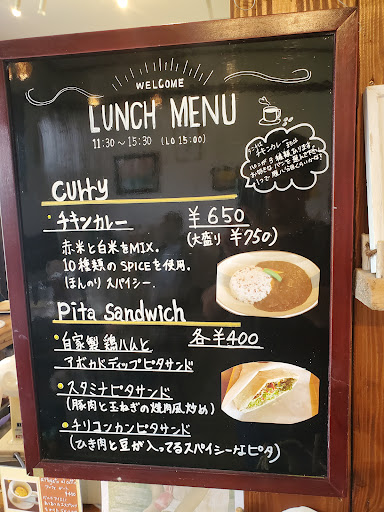 WELCOME
LUNCH MENU
11:30～15:30 (LO 15:00)
curry
・チキンカレー ￥650
(大盛り ￥750)
赤米と白米をMIX。
10種類のSPICEを使用。
ほんのりスパイシー。
Pita Sandwich
・自家製鶏ハムと 各￥400
アボカドディップピタサンド
・スタミナピタサンド
(豚肉と玉ねぎの焼肉風炒め)
・チリコンカンピタサンド
(ひき肉と豆が入ってるスパイシーなピタ)